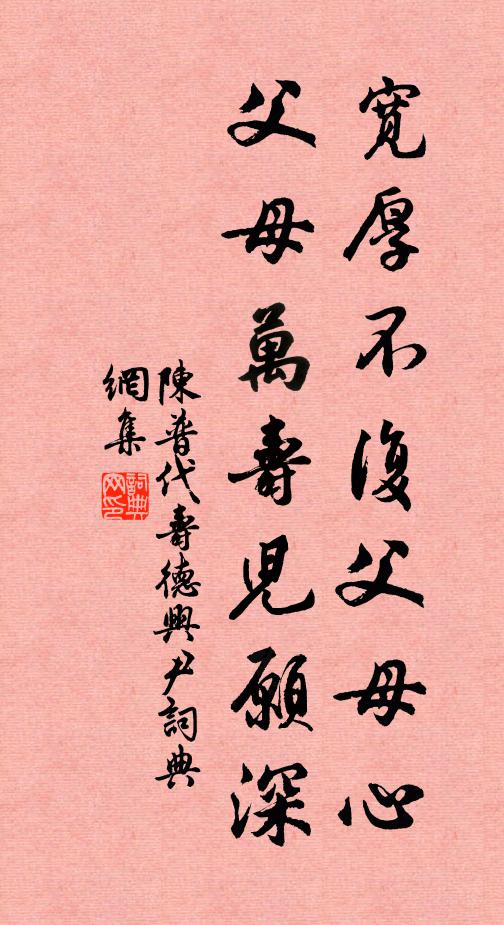 寬厚不復父母心
父母萬壽兒願深
陳普代壽德興尹詞典
網集
詞典
网印